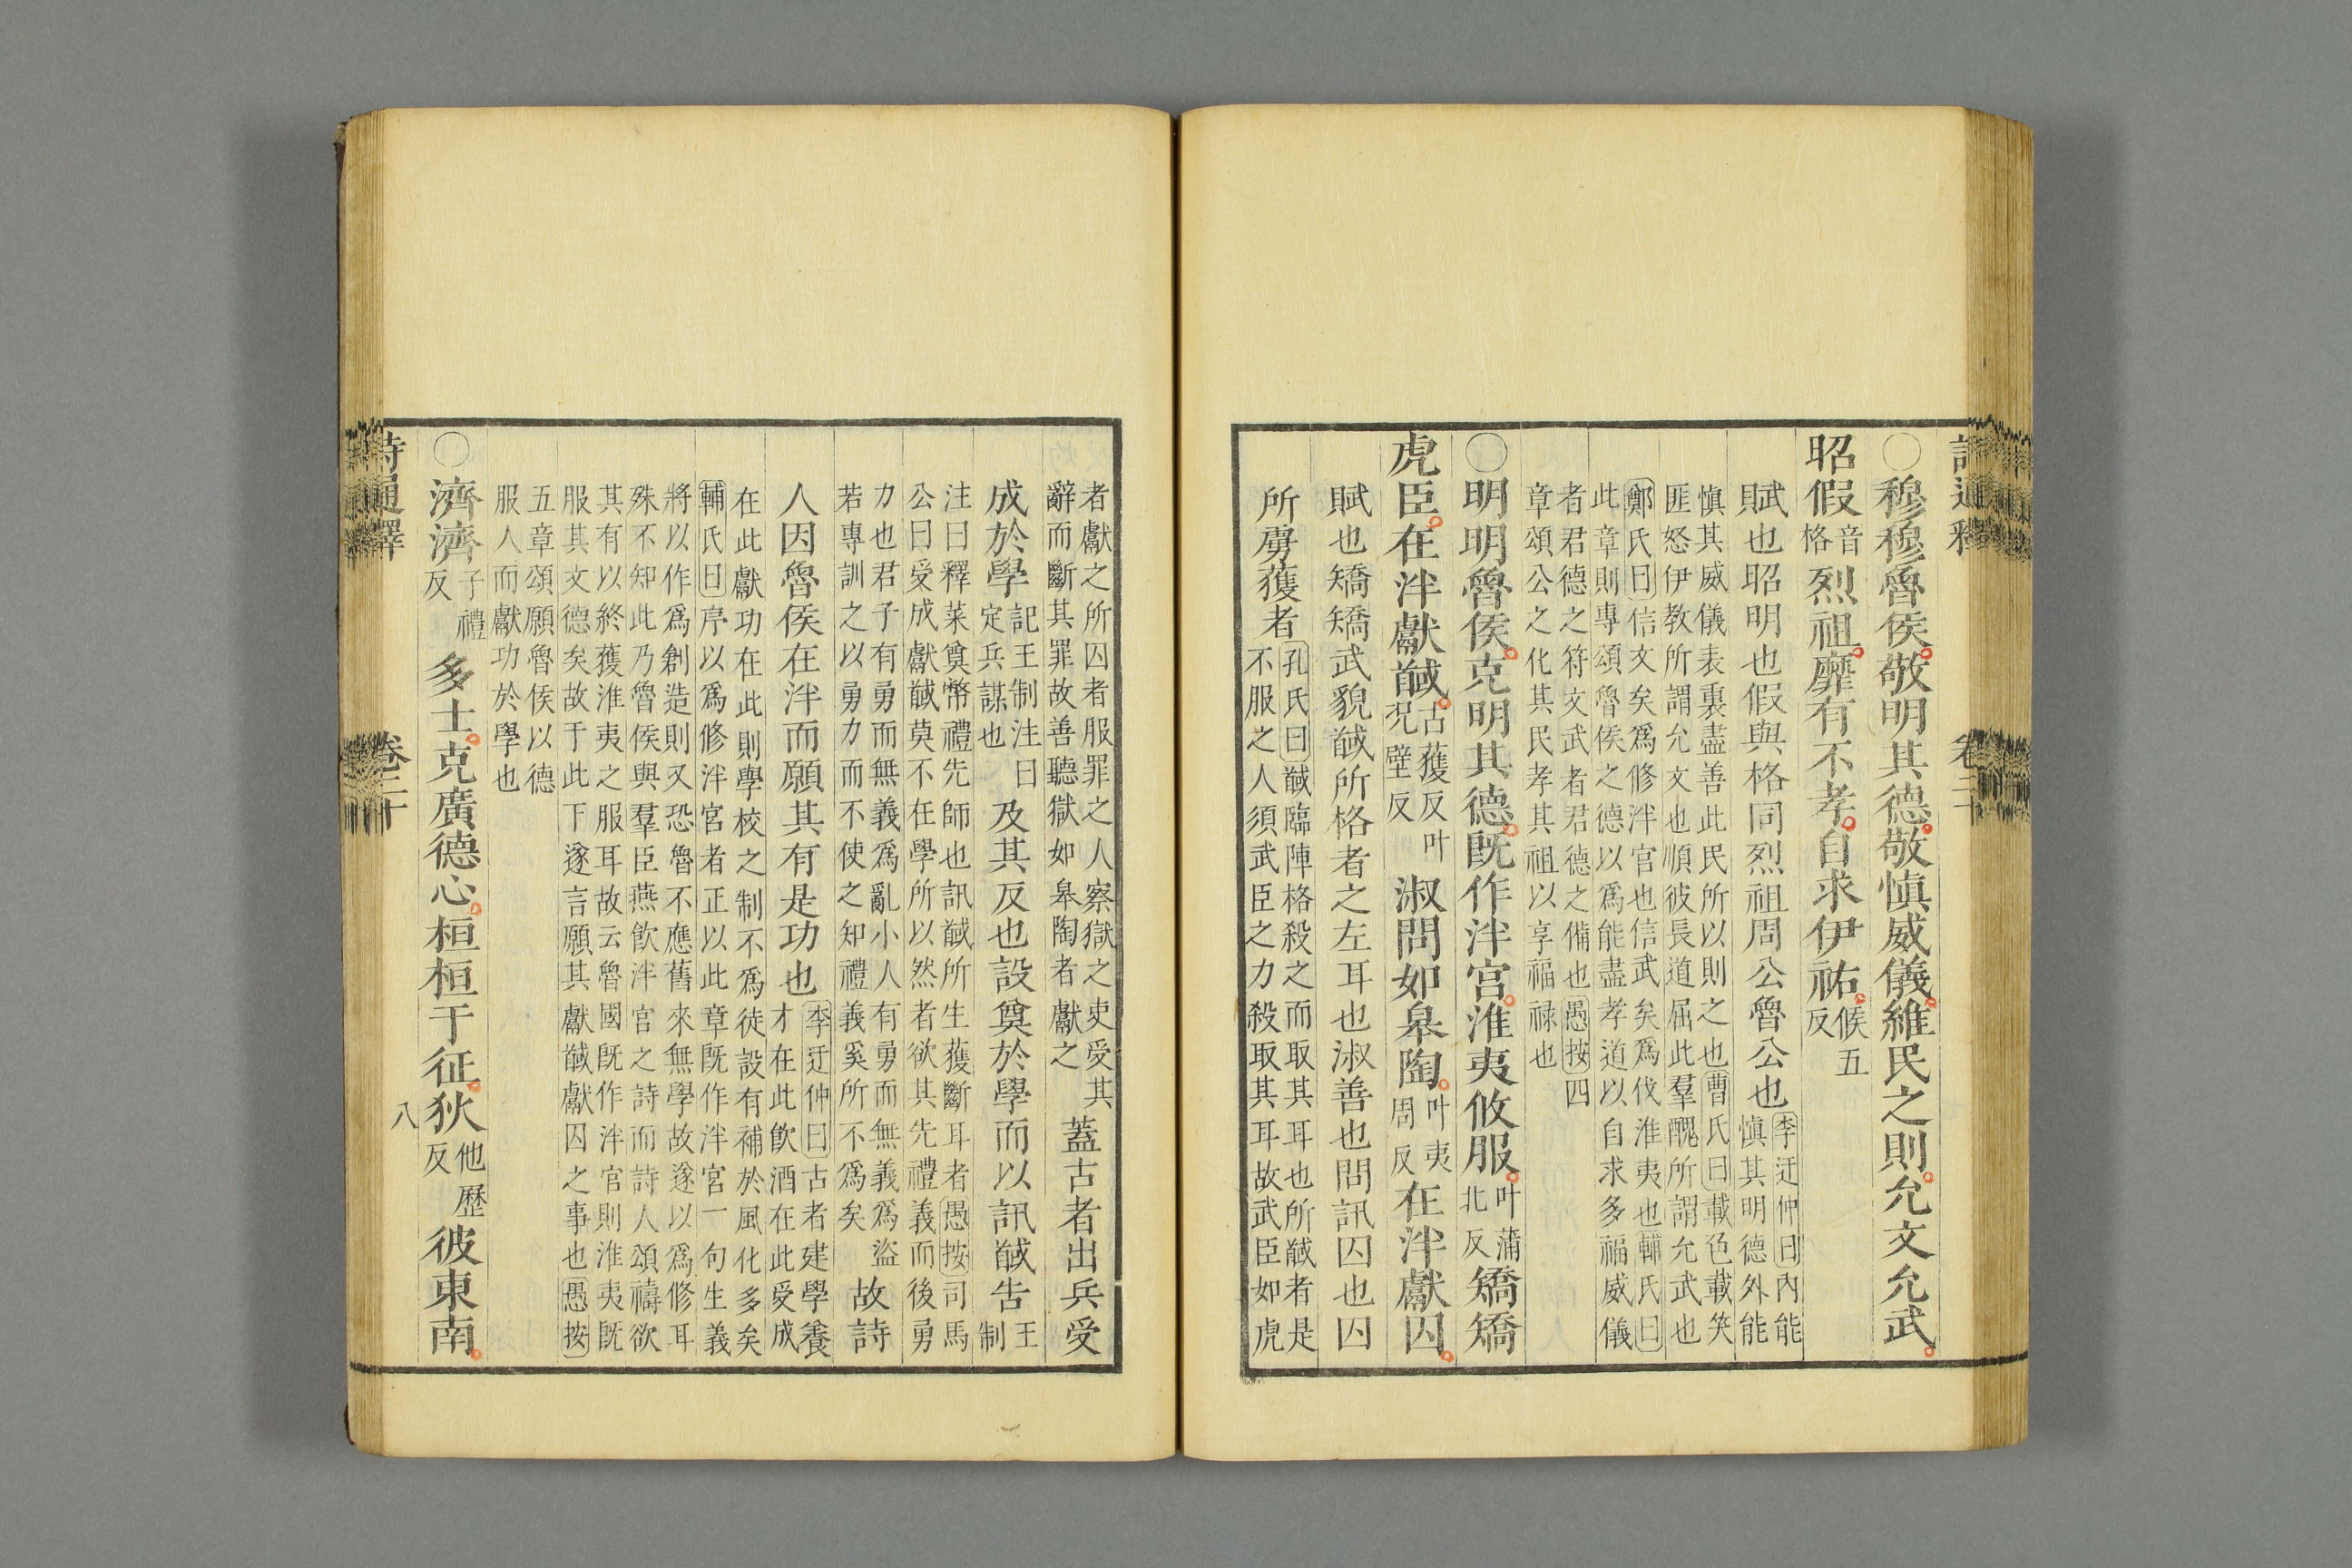 〇穆穆魯侯敬明其德敬慎威儀維民之則允文允武
昭假音格烈祖靡有不孝自求伊祜候五反
賦也昭明也假與格同烈祖周公魯公也李迂仲曰內能慎其明德外能
慎其威儀表裏盡善此民所以則之也曹氏曰載色載笑
匪怒伊教所謂允文也順彼長道屈此羣醜所謂允武也
鄭氏曰信文矣爲修泮宫也信武矣爲伐淮夷也輔氏曰
此章則專頌魯侯之德以爲能盡孝道以自求多福威儀
者君德之符文武者君德之備也愚按四
章頌公之化其民孝其祖以享福祿也
〇明明魯侯克明其德既作泮宫淮夷攸服叶蒲北反矯矯
虎臣在泮獻馘古獲反叶况壁反淑問如皋陶叶夷周反在泮獻囚
賦也矯矯武貌馘所格者之左耳也淑善也問訊囚也囚
所虜獲者孔氏曰馘臨陣格殺之而取其耳也所馘者是不服之人須武臣之力殺取其耳故武臣如虎
者獻之所囚者服罪之人察獄之吏受其辭而斷其罪故善聽獄如皋陶者獻之蓋古者出兵受
成於學記王制注曰定兵謀也及其反也設奠於學而以訊馘告王制
注曰釋菜奠幣禮先師也訊馘所生獲斷耳者愚按司馬
公曰受成獻馘莫不在學所以然者欲其先禮義而後勇
力也君子有勇而無義爲亂小人有勇而無義爲盜
若專訓之以勇力而不使之知禮義奚所不爲矣故詩
人因魯侯在泮而願其有是功也李迂仲曰古者建學養才在此飲酒在此受成
在此獻功在此則學校之制不爲徒設有補於風化多矣
輔氏曰序以爲修泮宮者正以此章既作泮宮一句生義
將以作爲創造則又恐魯不應舊來無學故遂以爲修耳
殊不知此乃魯侯與羣臣燕飲泮宫之詩而詩人頌禱欲
其有以終獲淮夷之服耳故云魯國既作泮宫則淮夷既
服其文德矣故于此下遂言願其獻馘獻囚之事也愚按
五章頌願魯侯以德
服人而獻功於學也
〇濟濟子禮反多士克廣德心桓桓于征狄他歷反彼東南
詩通釋 卷二十 八